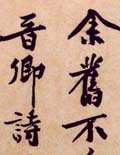 余舊不
晉卿詩